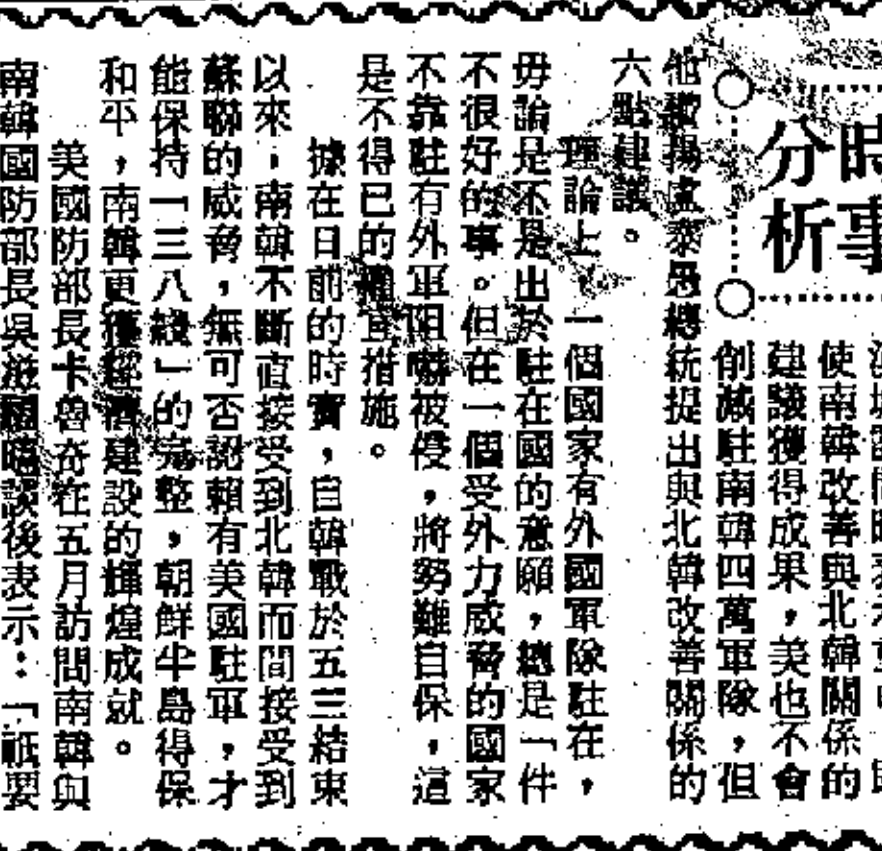 時事
分析
使南韓改善與北韓關係的
建議獲得成果，美也不會
削減駐南韓四萬軍隊，但
他歡揚盧泰愚總統提出與北韓改善關係的
六點建議。
理論上，一個國家有外國軍隊駐在，
毋論是不是出於駐在國的意願，總是一件
不很好的事。但在一個受外力威脅的國家
不靠駐有外軍阻嚇被侵，將勢難自保，這
是不得已的權宜措施。
據在日前的時實，自韓戰於五三結束
以來，南韓不斷直接受到北韓而間接受到
蘇聯的威脅，無可否認賴有美國駐軍，才
能保持「三八綫」的完整，朝鮮半島得保
和平，南韓更獲經濟建設的輝煌成就。
美國防部長卡魯奇在五月訪問南韓與
南韓國防部長吳滋國晤談後表示：「祇要